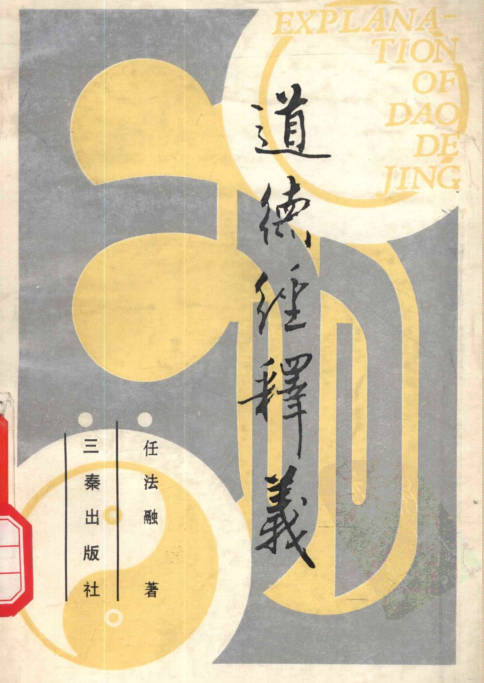 EXPLANA-
TION
OF
DAO
DE
JING
道德經釋義
任法融 著
三秦出版社